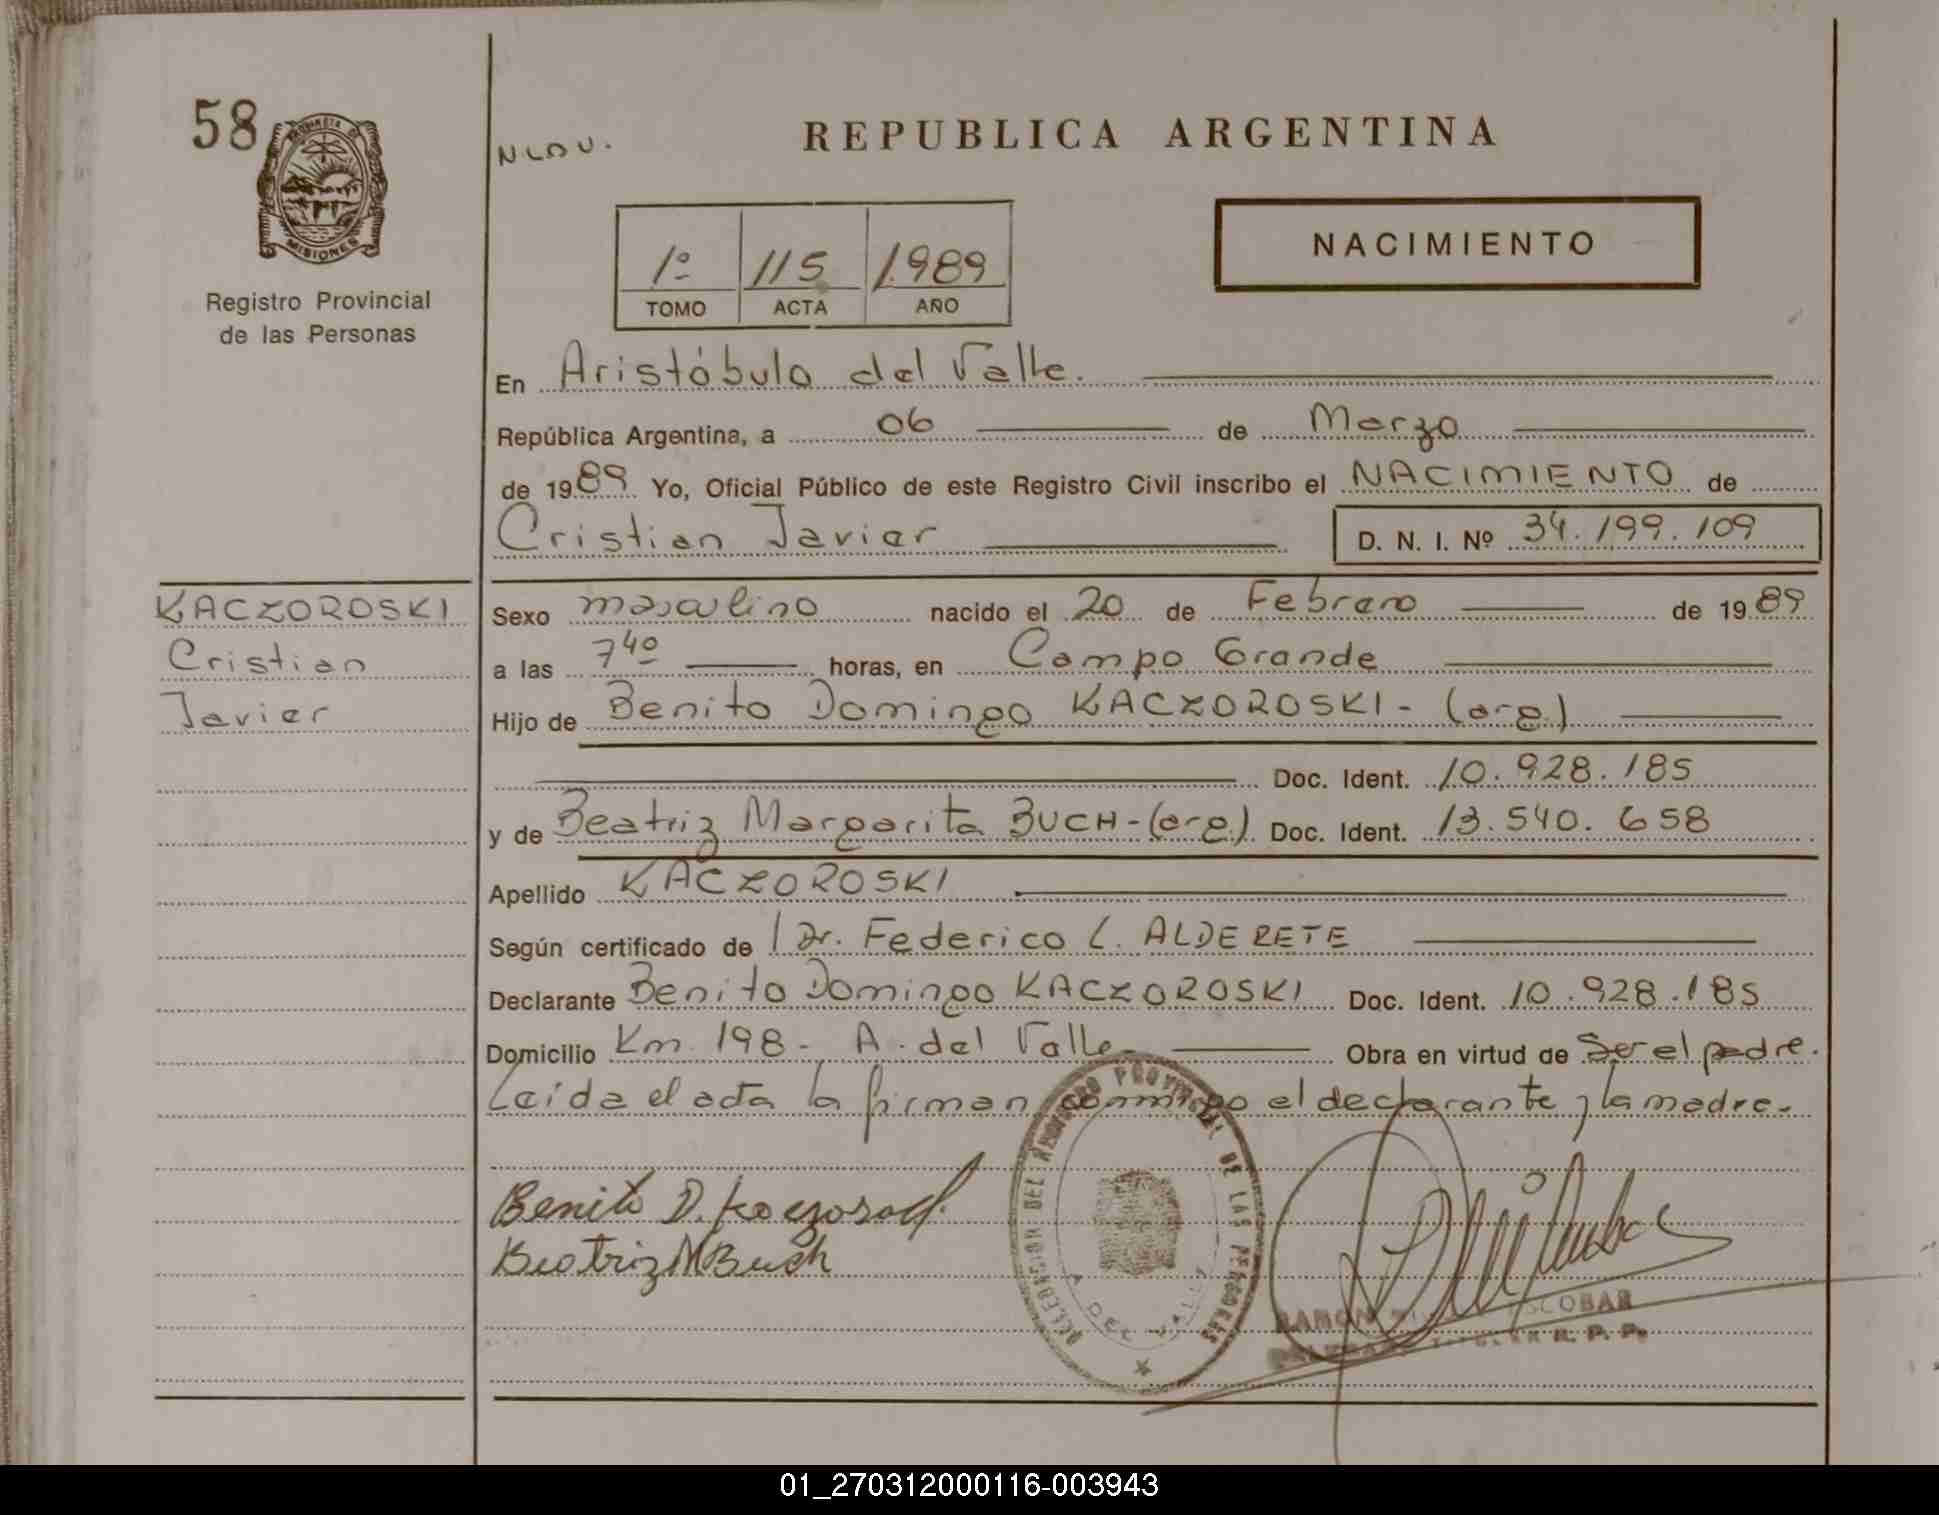 58
PROVINCIA DE
MISIONES
Registro Provincial
de las Personas
REPUBLICA ARGENTINA
NACIMIENTO
1º 115 1.989
TOMO ACTA AÑO
En Aristóbulo del Valle.
República Argentina, a 06 de Marzo
de 1989 Yo, Oficial Público de este Registro Civil inscribo el NACIMIENTO de
Cristian Javier D. N. I. Nº 34.199.109
KACZOROSKI
Cristian
Javier
Sexo masculino nacido el 20 de Febrero de 1989
a las 7 40 horas, en Campo Grande
Hijo de Benito Domingo KACZOROSKI - (arg.)
Doc. Ident. 10.928.185
y de Beatriz Margarita BUCH - (arg.) Doc. Ident. 13.540.658
Apellido KACZOROSKI
Según certificado de l Dr. Federico L. ALDERETE
Declarante Benito Domingo KACZOROSKI Doc. Ident. 10.928.185
Domicilio Km 198 - A. del Valle - Obra en virtud de Ser el padre.
Leída el acta la firman conmigo el declarante y la madre.-
Benito D. Kaczoroski
Beatriz M Buch
DELEGACION DEL REGISTRO PROVINCIAL DE LAS PERSONAS
A. DEL VALLE
RAMON ESCOBAR
TITULAR R. P. P.
01_270312000116-003943